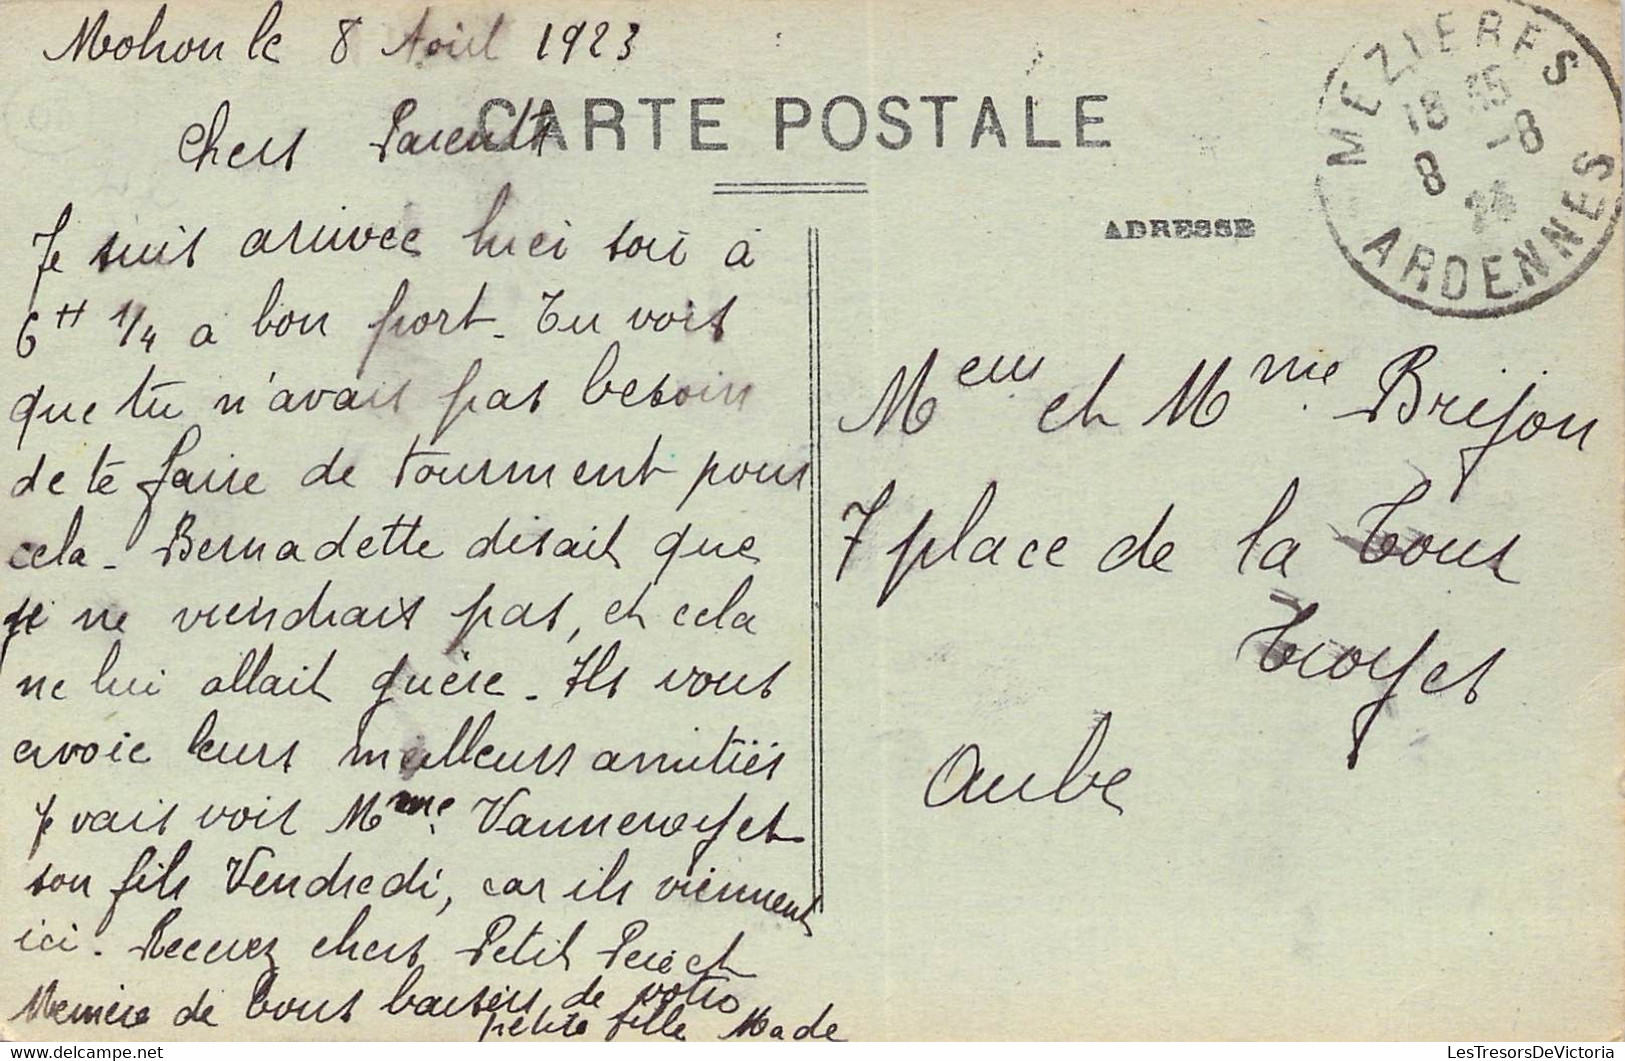 Mohon le 8 Août 1923
CARTE POSTALE
chers Parents
ADRESSE
MEZIERES
18 35
8 -8
23
ARDENNES
Je suis arrivée hier soir à
6H 1/4 a bon port. Tu vois
que tu n'avais pas besoin
de te faire de tourment pour
cela. Bernadette disait que
je ne viendrais pas, et cela
ne lui allait guère. Ils vous
envoie leurs meilleurs amitiés
Je vais voir Mme. Vanneroy et
son fils Vendredi, car ils viennent
ici. Recevez chers Petit Père et
Memère de bons baisers de votre
petite fille Made
Meur et Mme. Brijon
7 place de la Tour
Troyes
Aube
LesTresorsDeVictoria